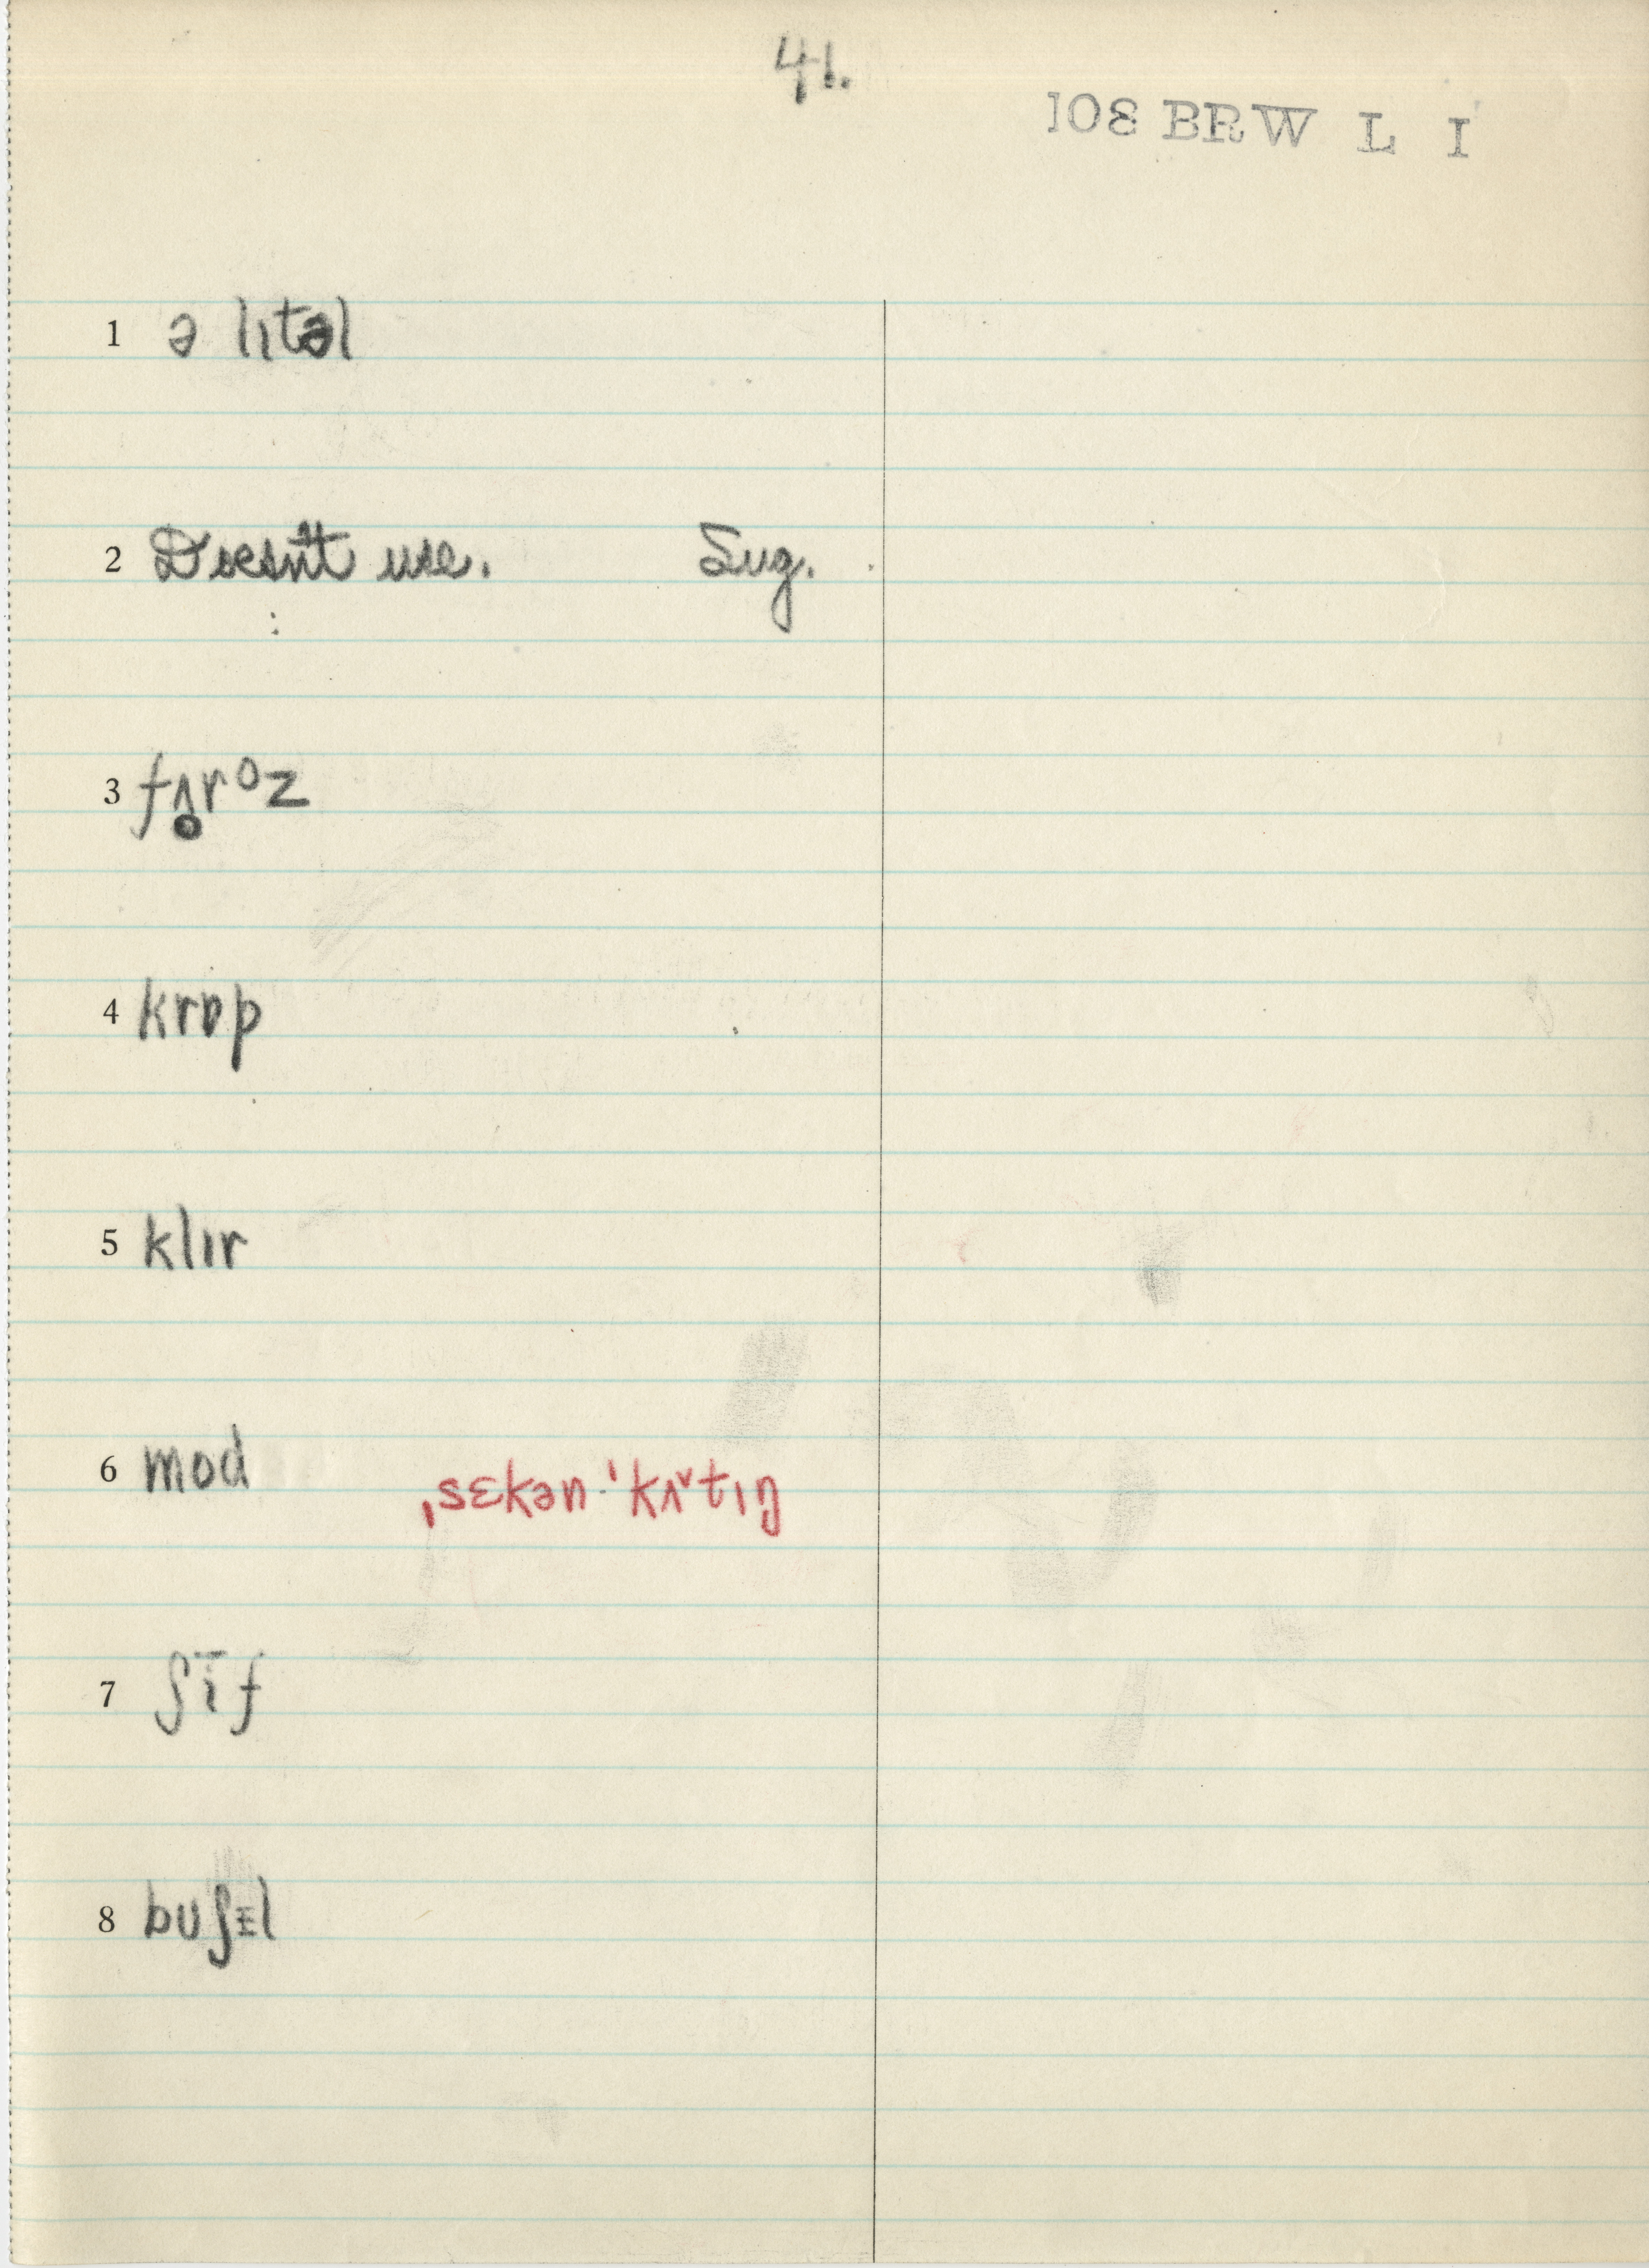 41.
108 BRW L I
1 ə lɪtəl
2 Doesn't use. Sug.
3 fʌ̥rºz
4 krɒp
5 klɪr
6 mod ˌsɛkən·ˈkʌ˅tɪŋ
7 ʃīf
8 buʃɪl